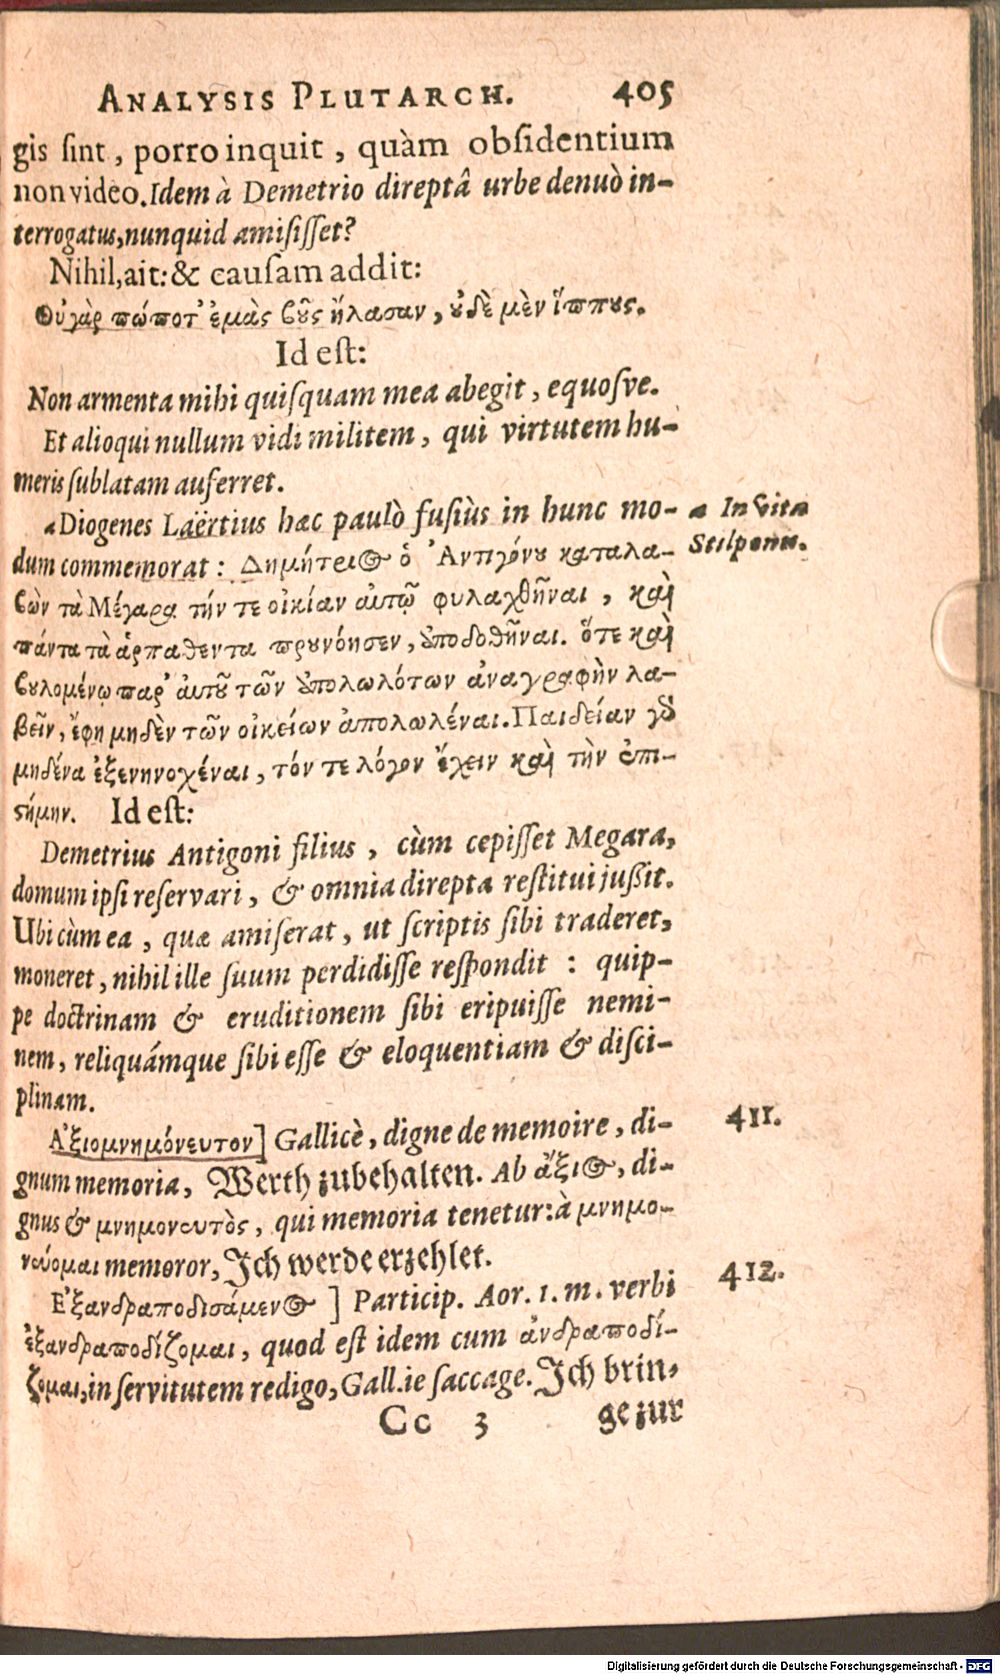 ANALYSIS PLUTARCH. 405
gis ſint, porro inquit, quàm obſidentium
non video. Idem à Demetrio direptâ urbe denuò in-
terrogatus, nunquid amiſiſſet?
Nihil, ait: & cauſam addit:
Οὐ γὰρ πώποτ' ἐμὰς βοῦς ἤλασαν, οὐδὲ μὲν ἵππους.
Id eſt:
Non armenta mihi quiſquam mea abegit, equoſve.
Et alioqui nullum vidi militem, qui virtutem hu-
meris ſublatam auferret.
a Diogenes Laërtius hæc paulò fuſiùs in hunc mo- a In vita
dum commemorat: Δημήτριος ὁ Ἀντιγόνου καταλα- Stilponis.
βὼν τὰ Μέγαρα τήν τε οἰκίαν αὐτῷ φυλαχθῆναι, καὶ
πάντα τὰ ἁρπαθεντα προυνόησεν, ὑποδοθῆναι. ὅτε καὶ
βουλομένῳ παρ' αὐτοῦ τῶν ὑπολωλότων ἀναγραφὴν λα-
βεῖν, ἔφη μηδὲν τῶν οἰκείων ἀπολωλέναι. Παιδείαν γὰρ
μηδένα ἐξενηνοχέναι, τόν τε λόγον ἔχειν καὶ τὴν ἐπι-
στήμην. Id eſt:
Demetrius Antigoni filius, cùm cepiſſet Megara,
domum ipſi reſervari, & omnia direpta reſtitui juſſit.
Ubi cùm ea, quæ amiſerat, ut ſcriptis ſibi traderet,
moneret, nihil ille ſuum perdidiſſe reſpondit: quip-
pe doctrinam & eruditionem ſibi eripuiſſe nemi-
nem, reliquámque ſibi eſſe & eloquentiam & diſci-
plinam.
Ἀξιομνημόνευτον] Gallicè, digne de memoire, di- 411.
gnum memoria, Werth zubehalten. Ab ἄξιος, di-
gnus & μνημονευτὸς, qui memoria tenetur: à μνημο-
νεύομαι memoror, Ich werde erzehlet.
Ἐξανδραποδισάμενος] Particip. Aor. 1. m. verbi 412.
ἐξανδραποδίζομαι, quod eſt idem cum ἀνδραποδί-
ζομαι, in ſervitutem redigo, Gall. ie ſaccage. Ich brin-
Cc 3 ge zur
Digitalisierung gefördert durch die Deutsche Forschungsgemeinschaft - DFG